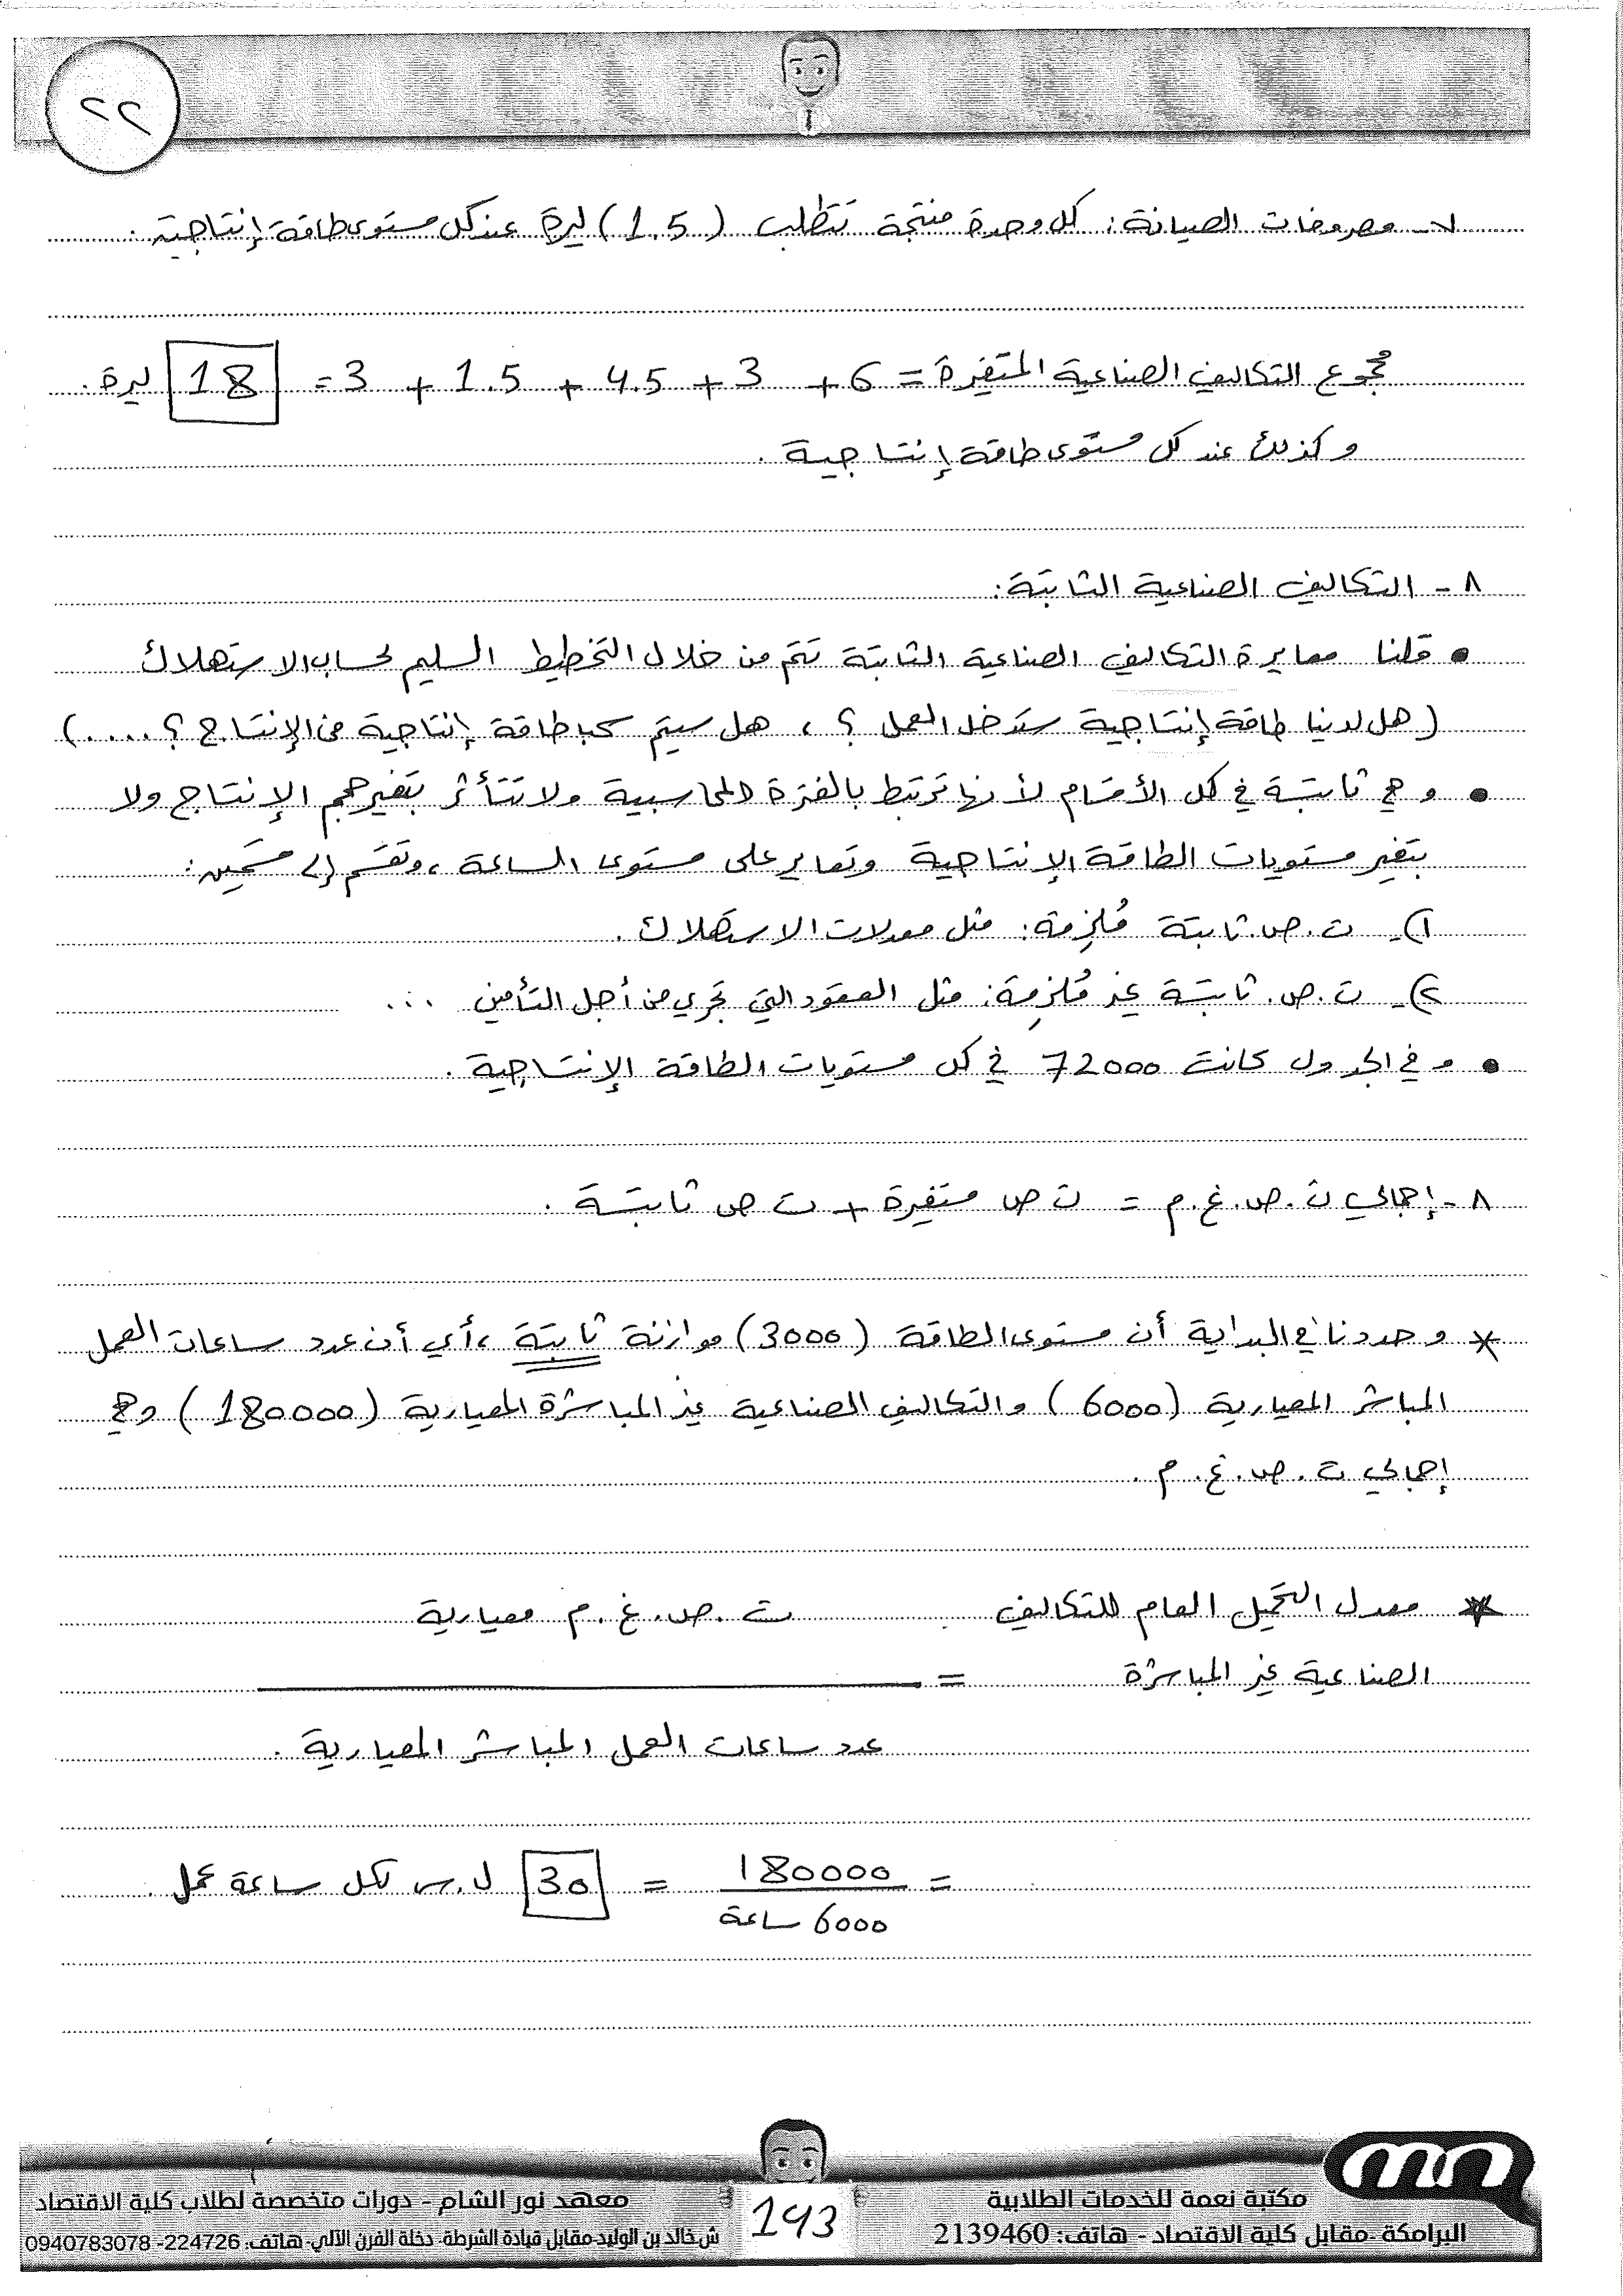 ٢٢
٧- مصروفات الصيانة: كل وحدة منتجة تتطلب (1.5) ليرة عند كل مستوى طاقة إنتاجية.
مجموع التكاليف الصناعية المتغيرة = 6 + 3 + 4.5 + 1.5 + 3 = 18 ليرة.
وكذلك عند كل مستوى طاقة إنتاجية.
٨- التكاليف الصناعية الثابتة:
• قلنا معايرة التكاليف الصناعية الثابتة تتم من خلال التخطيط السليم لحساب الاستهلاك
(هل لدينا طاقة إنتاجية ستدخل العمل؟، هل سيتم سحب طاقة إنتاجية من الإنتاج؟.....)
• وهي ثابتة في كل الأقسام لأنها ترتبط بالفترة المحاسبية ولا تتأثر بتغير حجم الإنتاج ولا
بتغير مستويات الطاقة الإنتاجية وتعاير على مستوى الساعة، وتقسم إلى قسمين:
١)- ت.ص. ثابتة مُلزِمة: مثل معدلات الاستهلاك.
٢)- ت.ص. ثابتة غير مُلزِمة: مثل العقود التي تجري من أجل التأمين ...
• وفي الجدول كانت 72000 في كل مستويات الطاقة الإنتاجية.
٨- إجمالي ت.ص.غ.م = ت ص متغيرة + ت ص ثابتة.
* وحددنا في البداية أن مستوى الطاقة (3000) موازنة ثابتة، أي أن عدد ساعات العمل
المباشر المعيارية (6000) والتكاليف الصناعية غير المباشرة المعيارية (180000) وهي
إجمالي ت.ص.غ.م.
* معدل التحميل العام للتكاليف ت.ص.غ.م معيارية
الصناعية غير المباشرة =
عدد ساعات العمل المباشر المعيارية.
= 180000 = 30 ل.س لكل ساعة عمل.
6000 ساعة
مكتبة نعمة للخدمات الطلابية
البرامكة -مقابل كلية الاقتصاد - هاتف: 2139460
193
معهد نور الشام - دورات متخصصة لطلاب كلية الاقتصاد
ش خالد بن الوليد-مقابل قيادة الشرطة- دخلة الفرن الآلي- هاتف: 224726- 0940783078